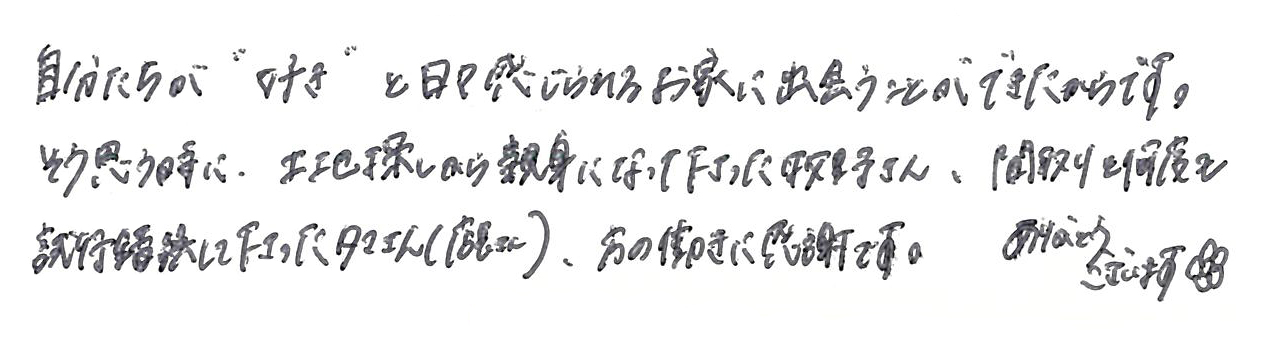 自分たちが"好き"と日々感じられるお家に出会うことができたからです。
そう思う時に、土地探しから親身になって下さった さん、間取りを何度も
試行錯誤して下さった さん( )、 の働きに感謝です。 ありがとう
ございます